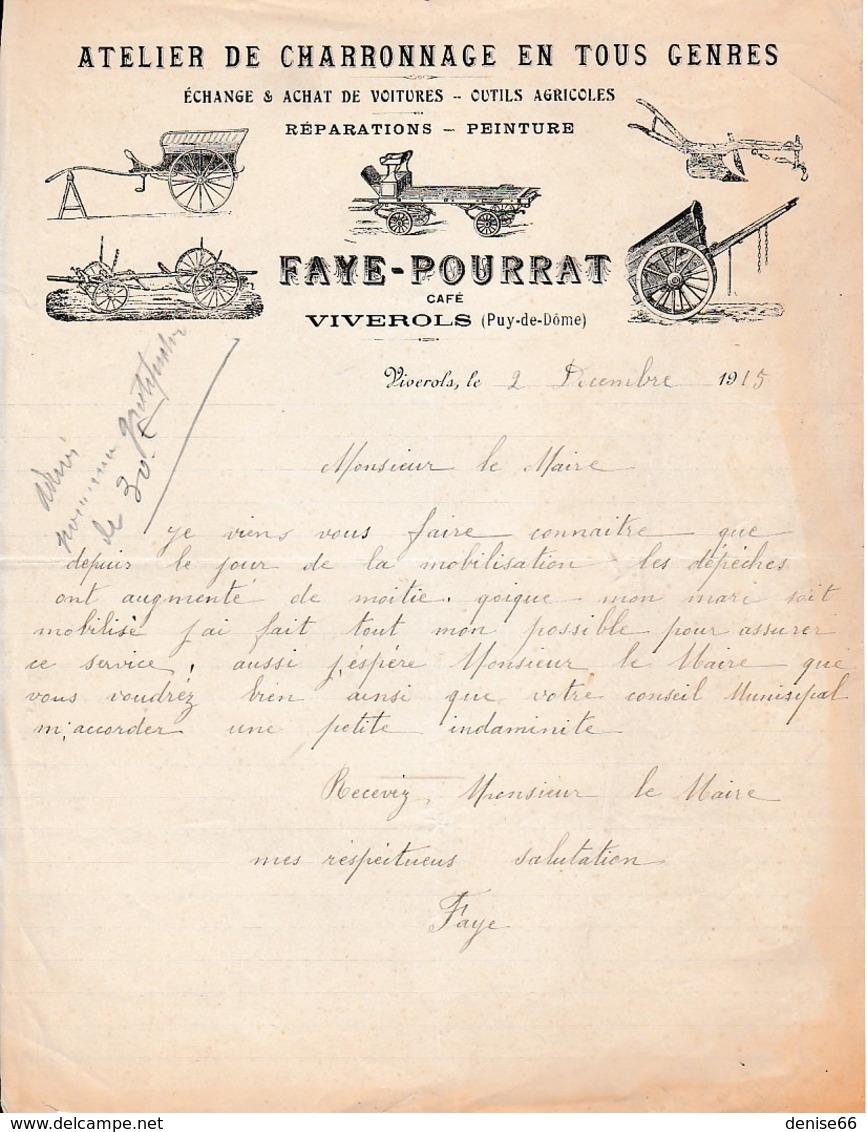 ATELIER DE CHARRONNAGE EN TOUS GENRES
ÉCHANGE & ACHAT DE VOITURES - OUTILS AGRICOLES
RÉPARATIONS - PEINTURE
FAYE-POURRAT
CAFÉ
VIVEROLS (Puy-de-Dôme)
Viverols, le 2 Decembre 1915
de 30 f
Monsieur le Maire
je viens vous faire connaitre que
depuis le jour de la mobilisation les dépéches
ont augmenté de moitie. goique mon mari soit
mobilisé j'ai fait tout mon possible pour assurer
ce service, aussi j'éspére Monsieur le Maire que
vous voudréz bien ainsi que votre conseil Munisipal
m'accorder une petite indaminite
Recevez Monsieur le Maire
mes réspéitueus salutation
Faye
delcampe.net
denise66